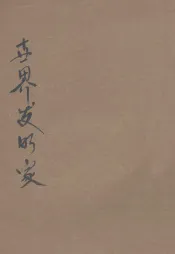 世界发明家